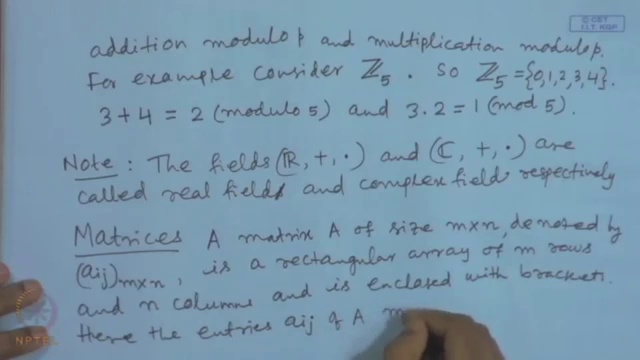 © CET
I.I.T. KGP
addition modulo p and multiplication modulo p.
For example consider ℤ₅. So ℤ₅ = {0,1,2,3,4}.
3+4 = 2 (modulo 5) and 3.2 = 1 (mod 5).
Note : The fields (ℝ, +, ·) and (ℂ, +, ·) are
called real field and complex field respectively
Matrices A matrix A of size m×n, denoted by
(aij)m×n, is a rectangular array of m rows
and n columns and is enclosed with brackets.
Here the entries aij of A
NPTEL